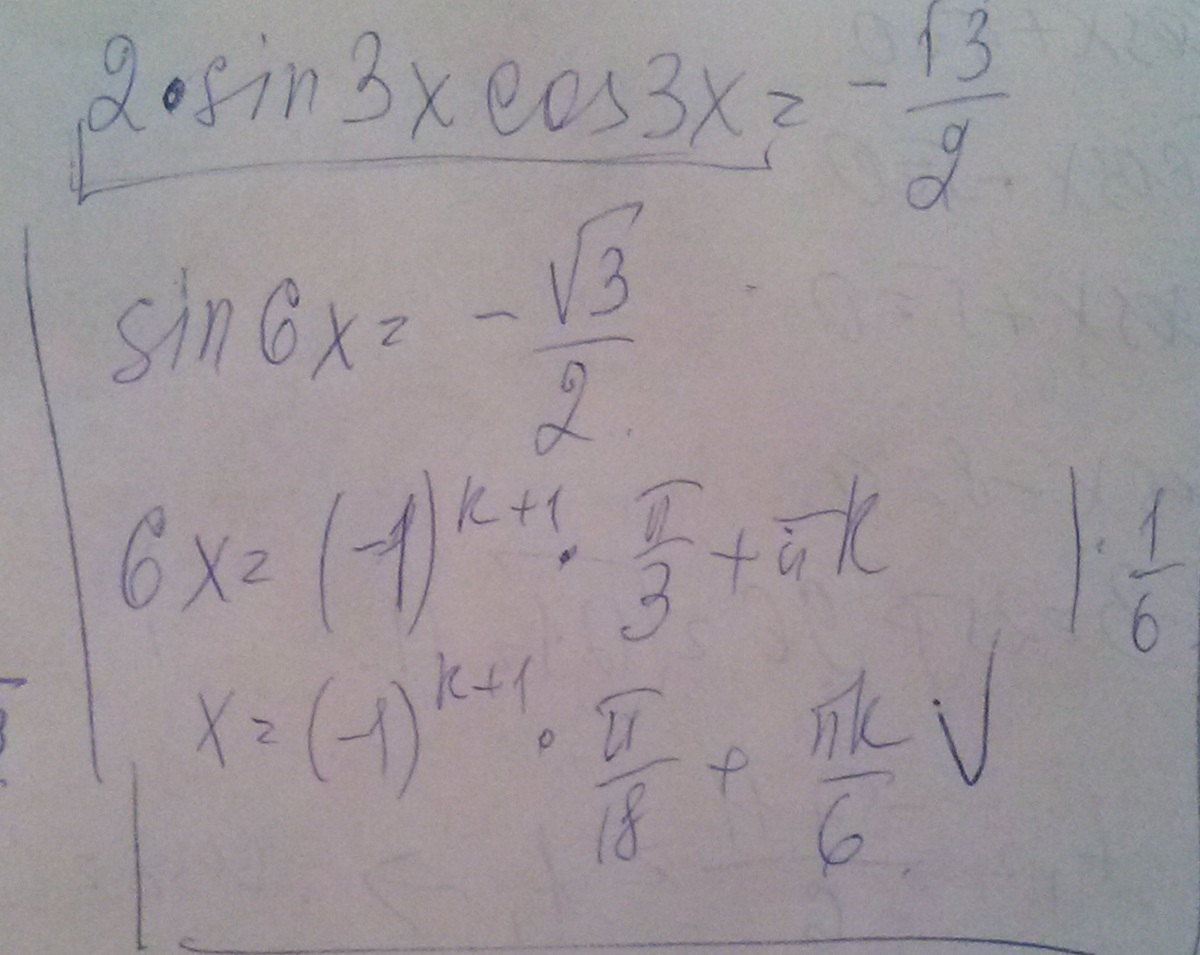 2·sin3x cos3x = -√3/2
sin6x = -√3/2
6x = (-1)^(k+1) · π/3 + πk |· 1/6
x = (-1)^(k+1) · π/18 + πk/6